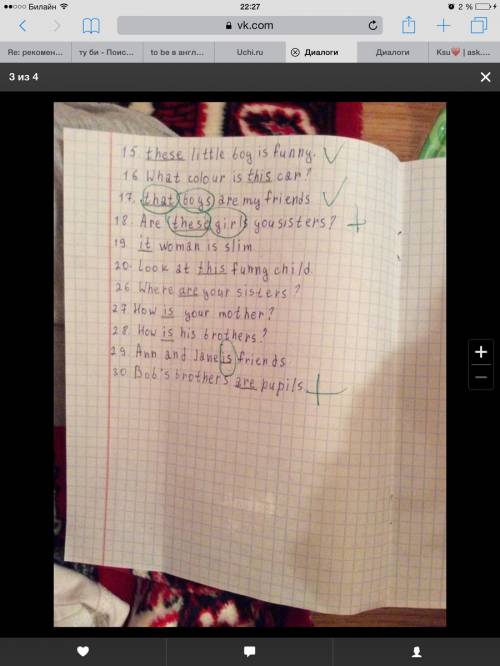 ●●○○○ Билайн 22:27 2 %
vk.com
Re: рекомен... ту би - Поис... to be в англ... Uchi.ru Диалоги Диалоги Ksu❤ | ask....
3 из 4
15. these little boy is funny.
16 What colour is this car?
17. that boys are my friends
18. Are these girls you sisters?
19. it woman is slim
20. Look at this funny child.
26. Where are your sisters?
27. How is your mother?
28. How is his brothers?
29. Ann and Jane is friends
30. Bob's brothers are pupils.